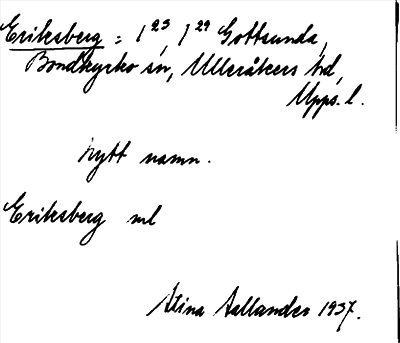 Eriksberg = 1²³ 1²⁹ Gottsunda,
Bondkyrko sn, Ulleråkers hd,
Upps. l.
Nytt namn.
Eriksberg
Stina Aallander 1937.